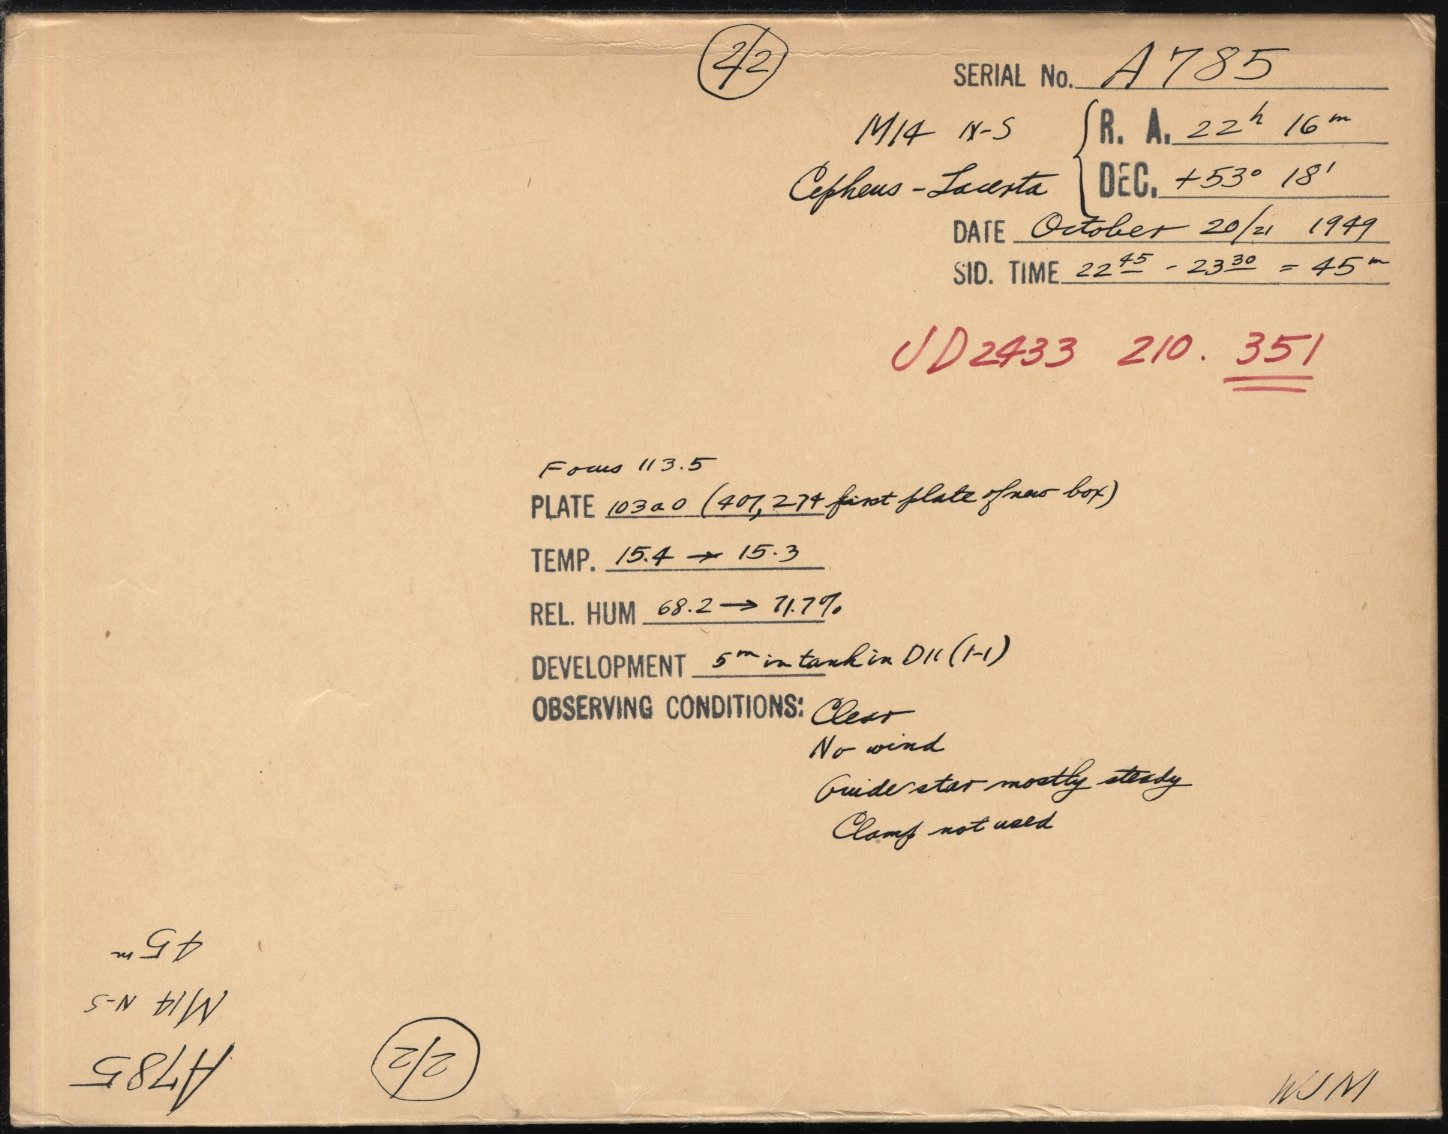 2/2
SERIAL No. A785
M14 N-S
R. A. 22h 16m
Cepheus - Lacerta
DEC. +53° 18'
DATE October 20/21 1949
SID. TIME 22 45 - 23 30 = 45m
JD2433 210. 351
Focus 113.5
PLATE 103a0 (407, 274 first plate of new box)
TEMP. 15.4 → 15.3
REL. HUM 68.2 → 71.7%
DEVELOPMENT 5m in tank in D11 (1-1)
OBSERVING CONDITIONS: Clear
No wind
Guide star mostly steady
Clamp not used
A785
M14 N-S
45m
2/2
WJM